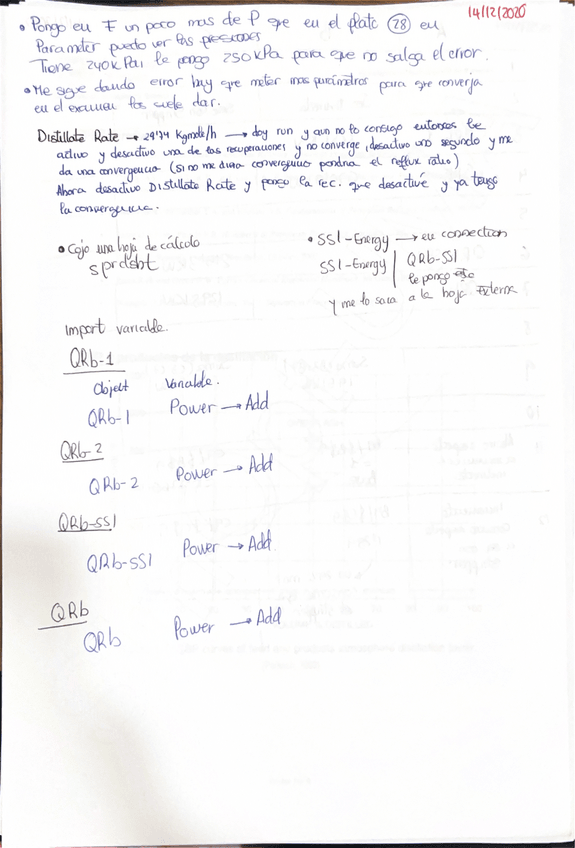 14/12/2020
• Pongo en F un poco mas de P que en el plato 28 en
Parameter puedo ver las presiones
Tiene 240 kPa, le pongo 250 kPa para que no salga el error.
• Me sigue dando error hay que meter mas parámetros para que converja
en el examen los suele dar.
Distillate Rate → 29'74 Kgmole/h → doy run y aun no lo consigo entonces le
activo y desactivo una de las recuperaciones y no converge, desactivo una segundo y me
da una convergencia (si no me diera convergencia pondria el reflux ratio)
Ahora desactivo Distillate Rate y pongo la rec. que desactivé y ya tengo
la convergencia.
• Cojo una hoja de cálculo
sprdsht
• SS1-Energy → en connection
SS1-Energy | QRb-SS1
le pongo eso
y me lo saca a la hoja Externa
Import variable
QRb-1
Object Variable.
QRb-1 Power → Add
QRb-2
QRb-2 Power → Add
QRb-SS1
QRb-SS1 Power → Add.
QRb
QRb Power → Add